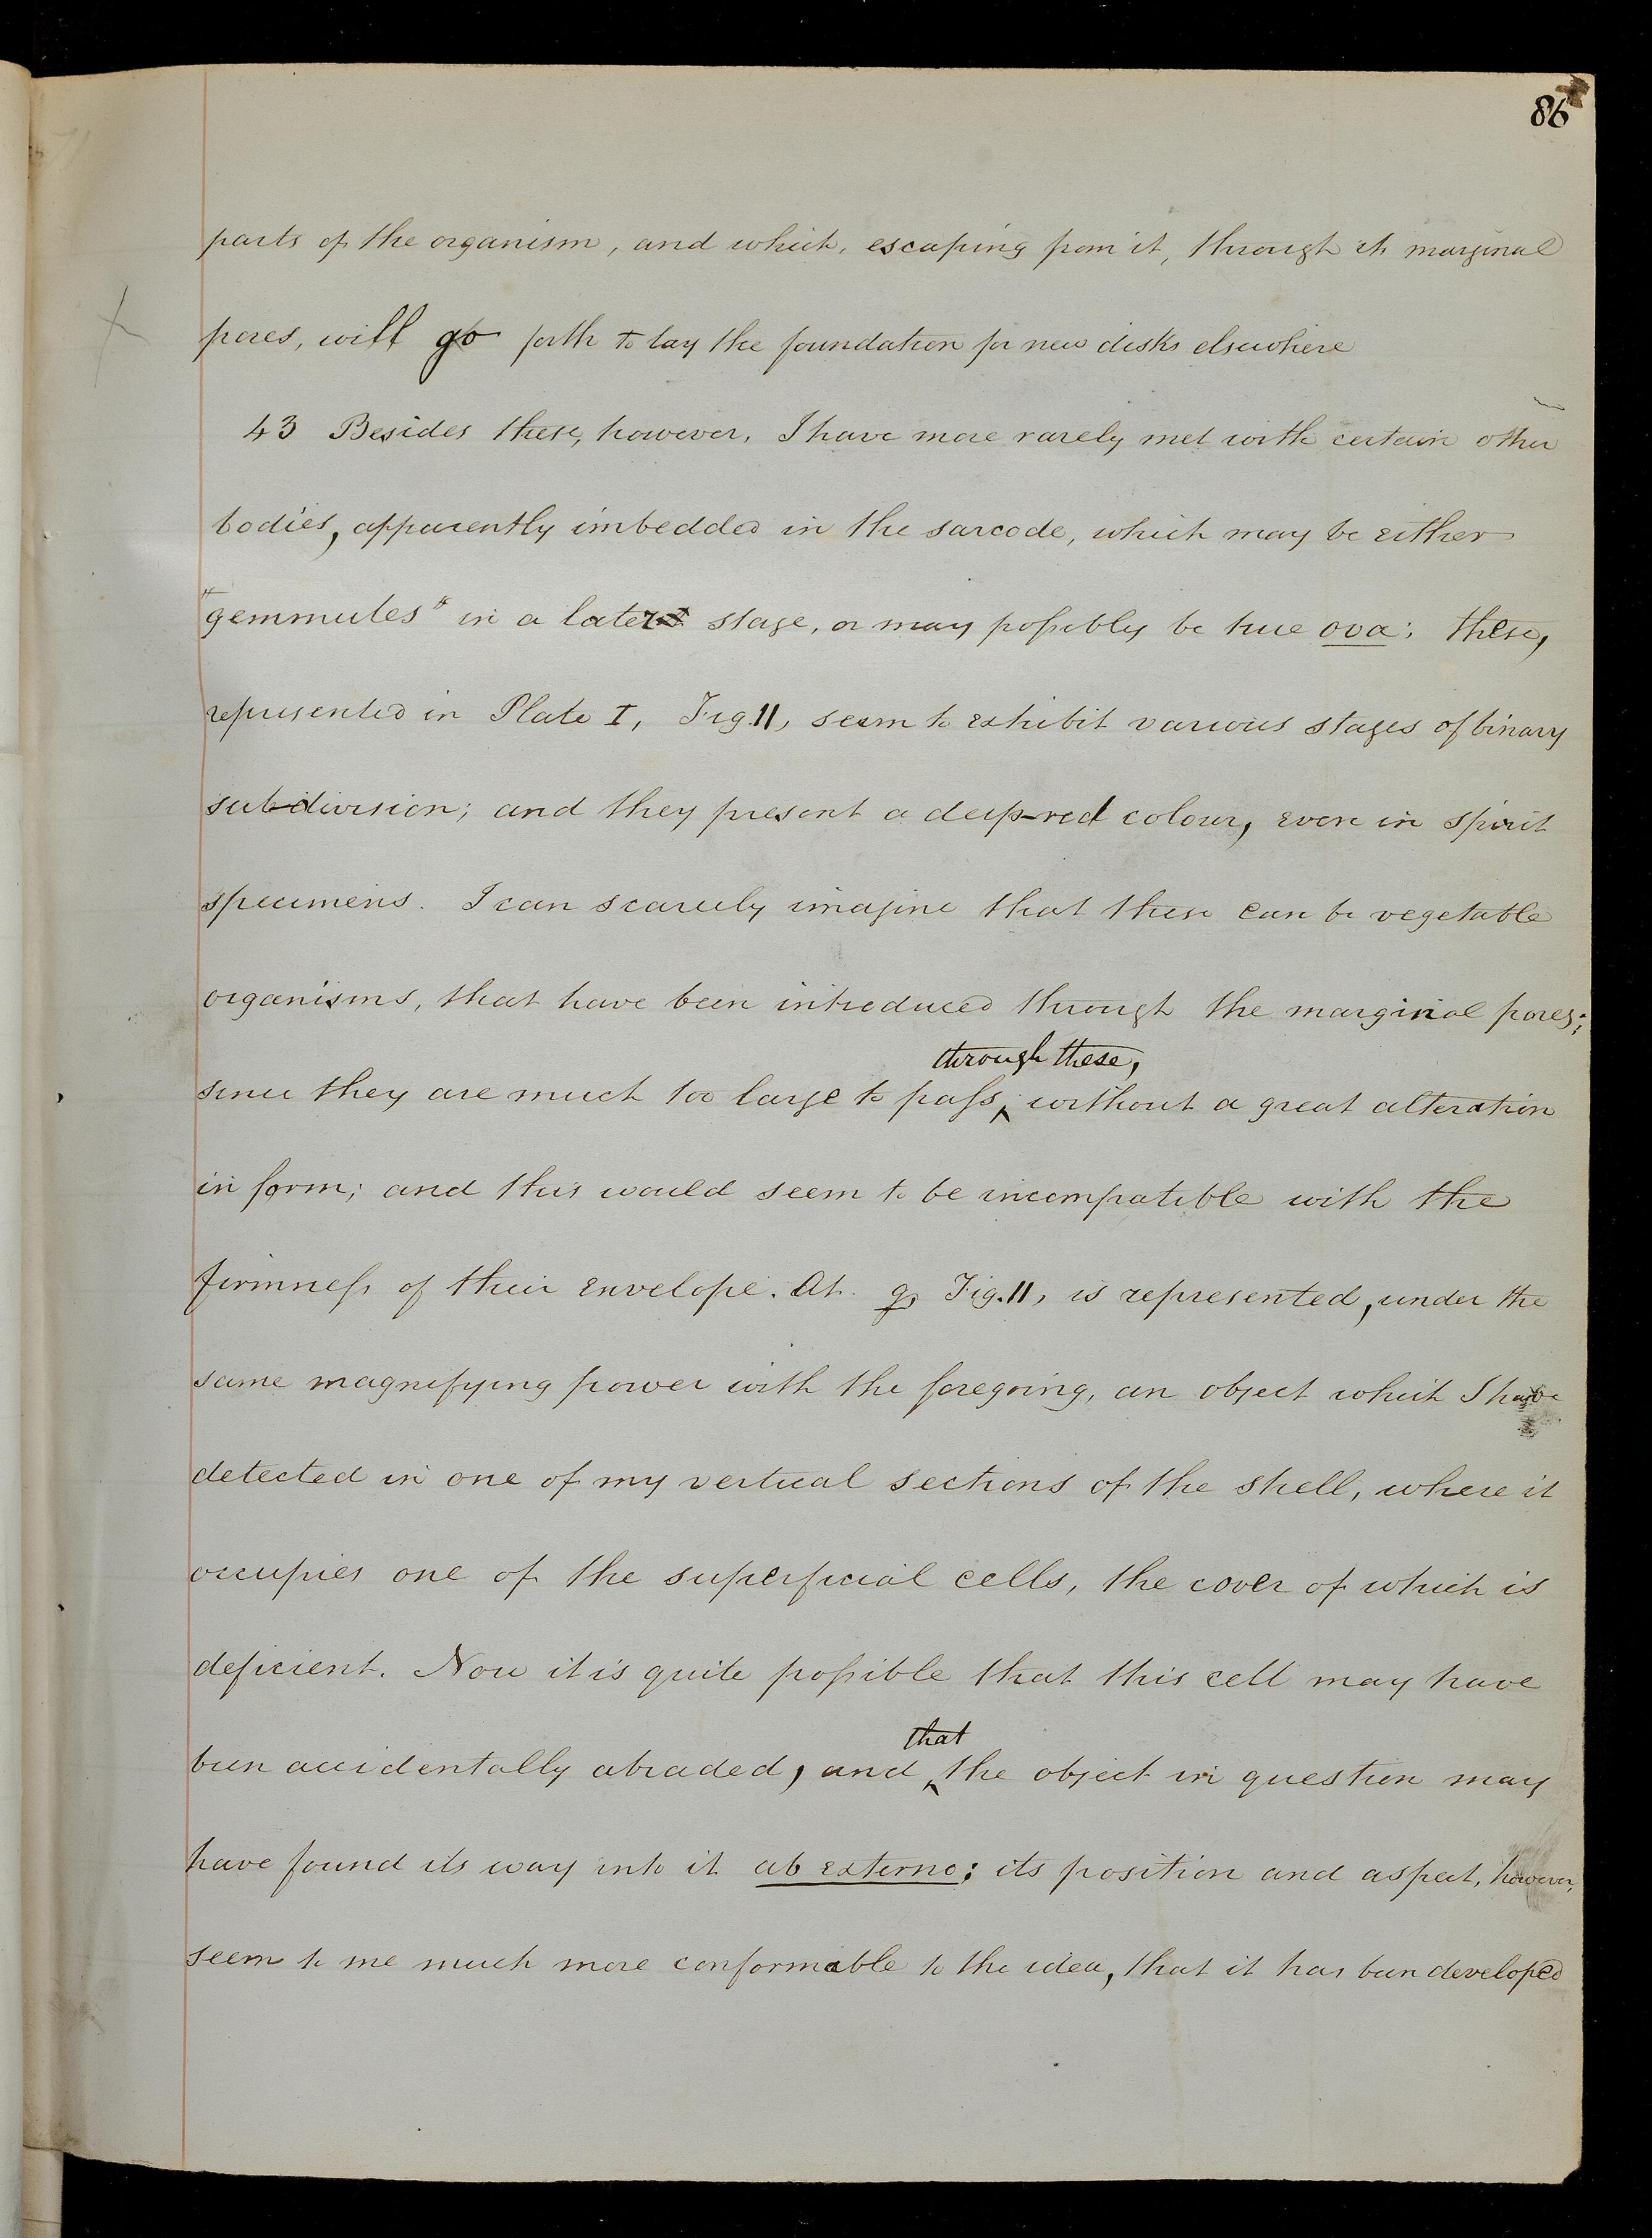 86
parts of the organism, and which, escaping from it, through its marginal
pores, will go forth to lay the foundation for new disks elsewhere
43 Besides these, however, I have more rarely met with certain other
bodies, apparently imbedded in the sarcode, which may be either
"gemmules" in a later stage, or may possibly be true ova; these,
represented in Plate I, Fig. 11, seem to exhibit various stages of binary
subdivision; and they present a deep-red colour, even in spirit
specimens. I can scarcely imagine that these can be vegetable
organisms, that have been introduced through the marginal pores;
through these,
since they are much too large to pass, without a great alteration
in form; and this would seem to be incompatible with the
firmness of their envelope. At g, Fig. 11, is represented, under the
same magnifying power with the foregoing, an object which I have
detected in one of my vertical sections of the shell, where it
occupies one of the superficial cells, the cover of which is
deficient. Now it is quite possible that this cell may have
that
been accidentally abraded, and the object in question may
have found its way into it ab externo; its position and aspect, however,
seem to me much more conformable to the idea, that it has been developed